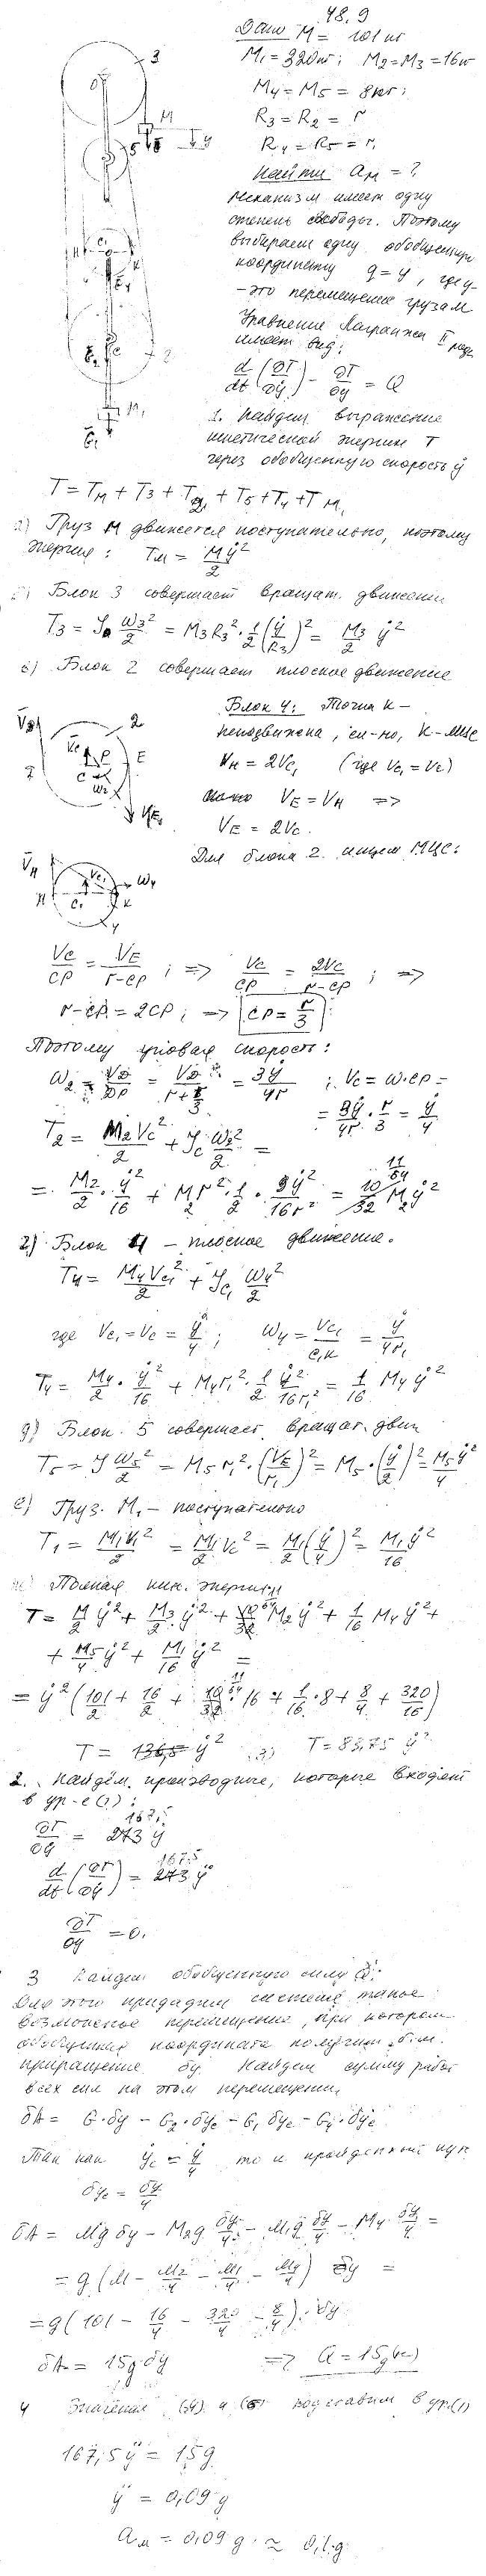 48.9
Дано M = 101 кг
M₁ = 320 кг; M₂ = M₃ = 16 кг
M₄ = M₅ = 8 кг;
R₃ = R₂ = r
R₄ = R₅ = r₁
Найти a_M = ?
Механизм имеет одну
степень свободы. Поэтому
выбираем одну обобщенную
координату q = y, где y
- это перемещение груза M
Уравнение Лагранжа II рода
имеет вид:
d/dt (∂T/∂ẏ) - ∂T/∂y = Q
1. Найдем выражение
кинетической энергии T
через обобщенную скорость ẏ
T = T_M + T₃ + T₂ + T₅ + T₄ + T_M₁
а) Груз M движется поступательно, поэтому
энергия: T_M = Mẏ²/2
Блок 3 совершает вращат. движение
T₃ = J₀ ω₃²/2 = M₃R₃² · 1/2 (ẏ/R₃)² = M₃/2 ẏ²
в) Блок 2 совершает плоское движение
Блок 4: Точка K -
неподвижна, сл-но, K - МЦС
V_H = 2V_C₁ (где V_C₁ = V_C)
V_E = V_H =>
V_E = 2V_C.
Для блока 2 ищем МЦС:
V_C/CP = V_E/(r-CP) ; => V_C/CP = 2V_C/(r-CP) ; =>
r - CP = 2CP ; => CP = r/3
Поэтому угловая скорость:
ω₂ = V_D/DP = V_D/(r + r/3) = 3ẏ/4r ; V_C = ω·CP =
= 3ẏ/4r · r/3 = ẏ/4
T₂ = M₂V_C²/2 + J_C ω₂²/2 =
= M₂/2 · ẏ²/16 + M₂r² · 1/2 · 9ẏ²/16r² = 10/32 11/64 M₂ẏ²
г) Блок 4 - плоское движение.
T₄ = M₄V_C₁²/2 + J_C₁ ω₄²/2
где V_C₁ = V_C = ẏ/4 ; ω₄ = V_C₁/C₁K = ẏ/4r₁
T₄ = M₄/2 · ẏ²/16 + M₄r₁² · 1/2 ẏ²/16r₁² = 1/16 M₄ẏ²
д) Блок 5 совершает вращат. движ
T₅ = J ω₅²/2 = M₅r₁² · (V_E/r₁)² = M₅ · (ẏ/2)² = M₅ẏ²/4
е) Груз M₁ - поступательно
T₁ = M₁V₁²/2 = M₁/2 V_C² = M₁/2 (ẏ/4)² = M₁ẏ²/16
Полная кин. энергия
T = M/2 ẏ² + M₃/2 ẏ² + 10/32 M₂ẏ² + 1/16 M₄ẏ² +
+ M₅/4 ẏ² + M₁/16 ẏ² =
= ẏ² (101/2 + 16/2 + 11/64 · 16 + 1/16 · 8 + 8/4 + 320/16)
T = 136,5 ẏ² (3) T = 83,75 ẏ²
2. Найдём производные, которые входят
в ур-е (1):
∂T/∂ẏ = 273 167,5 ẏ
d/dt (∂T/∂ẏ) = 273 167,5 ÿ
∂T/∂y = 0.
3 Найдем обобщенную силу Q:
Для этого придадим системе такое
возможное перемещение, при котором
обобщенная координата получит б.м.
приращение δy. Найдем сумму работ
всех сил на этом перемещении
δA = G·δy - G₂·δy_C - G₁δy_C - G₄·δy_C
Так как ẏ_C = ẏ/4 то и пройденный путь
δy_C = δy/4
δA = Mg δy - M₂g δy/4 - M₁g δy/4 - M₄ δy/4 =
= g (M - M₂/4 - M₁/4 - M₄/4) δy =
= g (101 - 16/4 - 320/4 - 8/4) · δy
δA = 15g·δy => Q = 15g
4 Значения (4) и (5) подставим в ур.(1)
167,5ÿ = 15g
ÿ = 0,09 g
a_M = 0,09 g ≈ 0,1·g